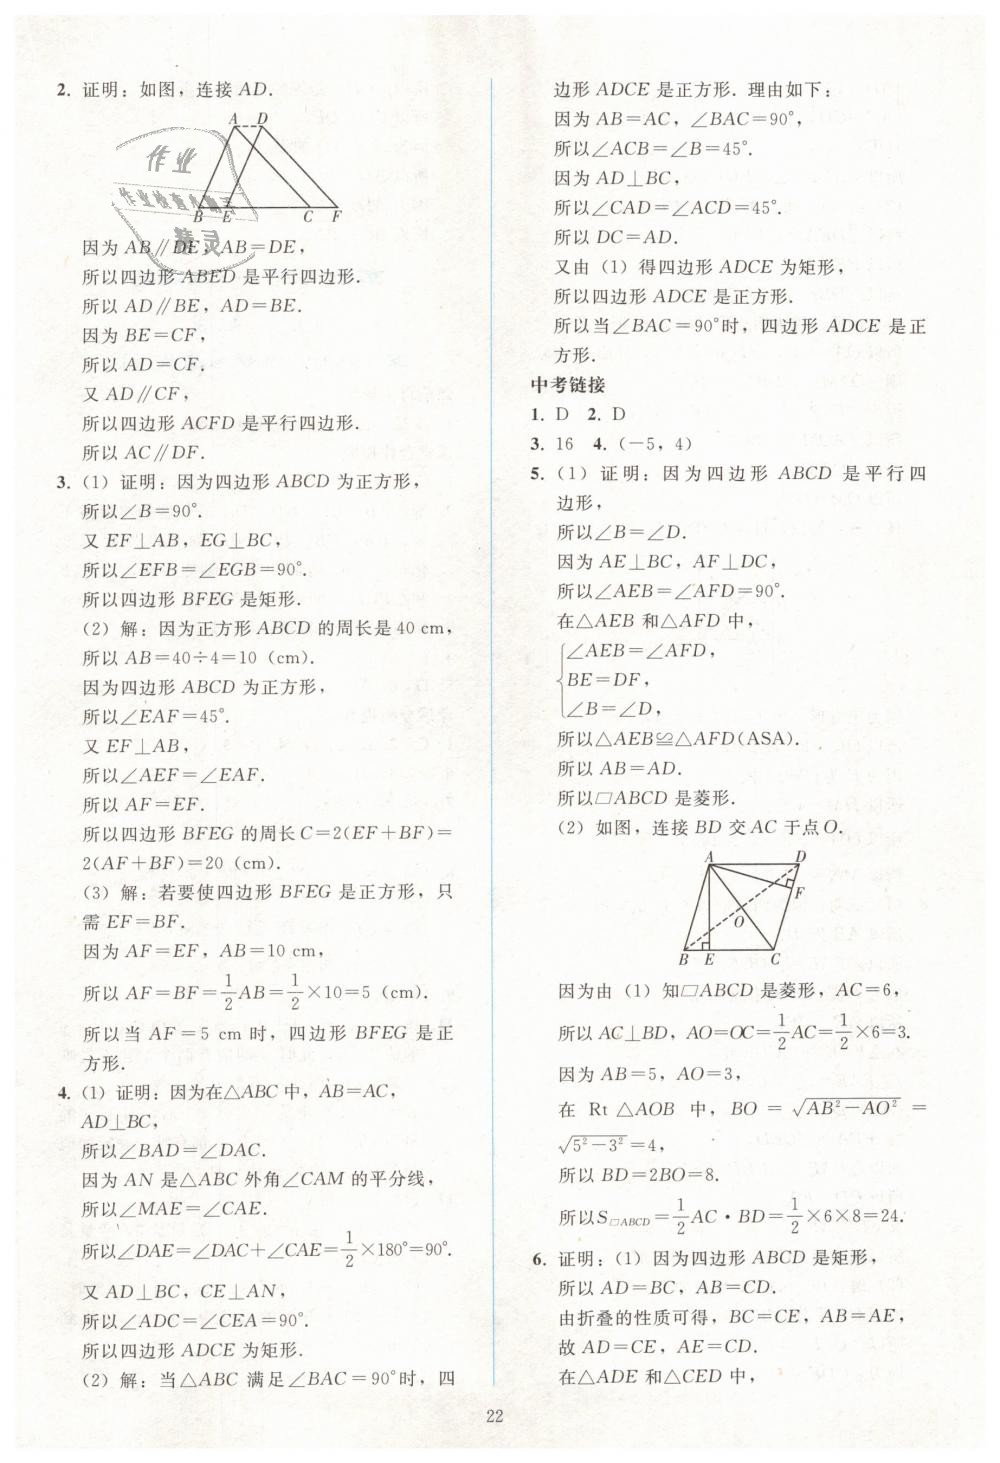 2. 证明：如图，连接 AD.
A D
B E C F
因为 AB∥DE，AB=DE，
所以四边形 ABED 是平行四边形.
所以 AD∥BE，AD=BE.
因为 BE=CF，
所以 AD=CF.
又 AD∥CF，
所以四边形 ACFD 是平行四边形.
所以 AC∥DF.
3. (1) 证明：因为四边形 ABCD 为正方形，
所以∠B=90°.
又 EF⊥AB，EG⊥BC，
所以∠EFB=∠EGB=90°.
所以四边形 BFEG 是矩形.
(2) 解：因为正方形 ABCD 的周长是 40 cm，
所以 AB=40÷4=10 (cm).
因为四边形 ABCD 为正方形，
所以∠EAF=45°.
又 EF⊥AB，
所以∠AEF=∠EAF.
所以 AF=EF.
所以四边形 BFEG 的周长 C=2(EF+BF)=
2(AF+BF)=20 (cm).
(3) 解：若要使四边形 BFEG 是正方形，只
需 EF=BF.
因为 AF=EF，AB=10 cm，
所以 AF=BF=1/2AB=1/2×10=5 (cm).
所以当 AF=5 cm 时，四边形 BFEG 是正
方形.
4. (1) 证明：因为在△ABC 中，AB=AC，
AD⊥BC，
所以∠BAD=∠DAC.
因为 AN 是△ABC 外角∠CAM 的平分线，
所以∠MAE=∠CAE.
所以∠DAE=∠DAC+∠CAE=1/2×180°=90°.
又 AD⊥BC，CE⊥AN，
所以∠ADC=∠CEA=90°.
所以四边形 ADCE 为矩形.
(2) 解：当△ABC 满足∠BAC=90°时，四
边形 ADCE 是正方形. 理由如下：
因为 AB=AC，∠BAC=90°，
所以∠ACB=∠B=45°.
因为 AD⊥BC，
所以∠CAD=∠ACD=45°.
所以 DC=AD.
又由 (1) 得四边形 ADCE 为矩形，
所以四边形 ADCE 是正方形.
所以当∠BAC=90°时，四边形 ADCE 是正
方形.
中考链接
1. D 2. D
3. 16 4. (-5，4)
5. (1) 证明：因为四边形 ABCD 是平行四
边形，
所以∠B=∠D.
因为 AE⊥BC，AF⊥DC，
所以∠AEB=∠AFD=90°.
在△AEB 和△AFD 中，
∠AEB=∠AFD，
BE=DF，
∠B=∠D，
所以△AEB≌△AFD(ASA).
所以 AB=AD.
所以□ABCD 是菱形.
(2) 如图，连接 BD 交 AC 于点 O.
A D
F
O
B E C
因为由 (1) 知□ABCD 是菱形，AC=6，
所以 AC⊥BD，AO=OC=1/2AC=1/2×6=3.
因为 AB=5，AO=3，
在 Rt △AOB 中，BO = √(AB²-AO²) =
√(5²-3²)=4，
所以 BD=2BO=8.
所以S□ABCD=1/2AC·BD=1/2×6×8=24.
6. 证明：(1) 因为四边形 ABCD 是矩形，
所以 AD=BC，AB=CD.
由折叠的性质可得，BC=CE，AB=AE，
故 AD=CE，AE=CD.
在△ADE 和△CED 中，
22